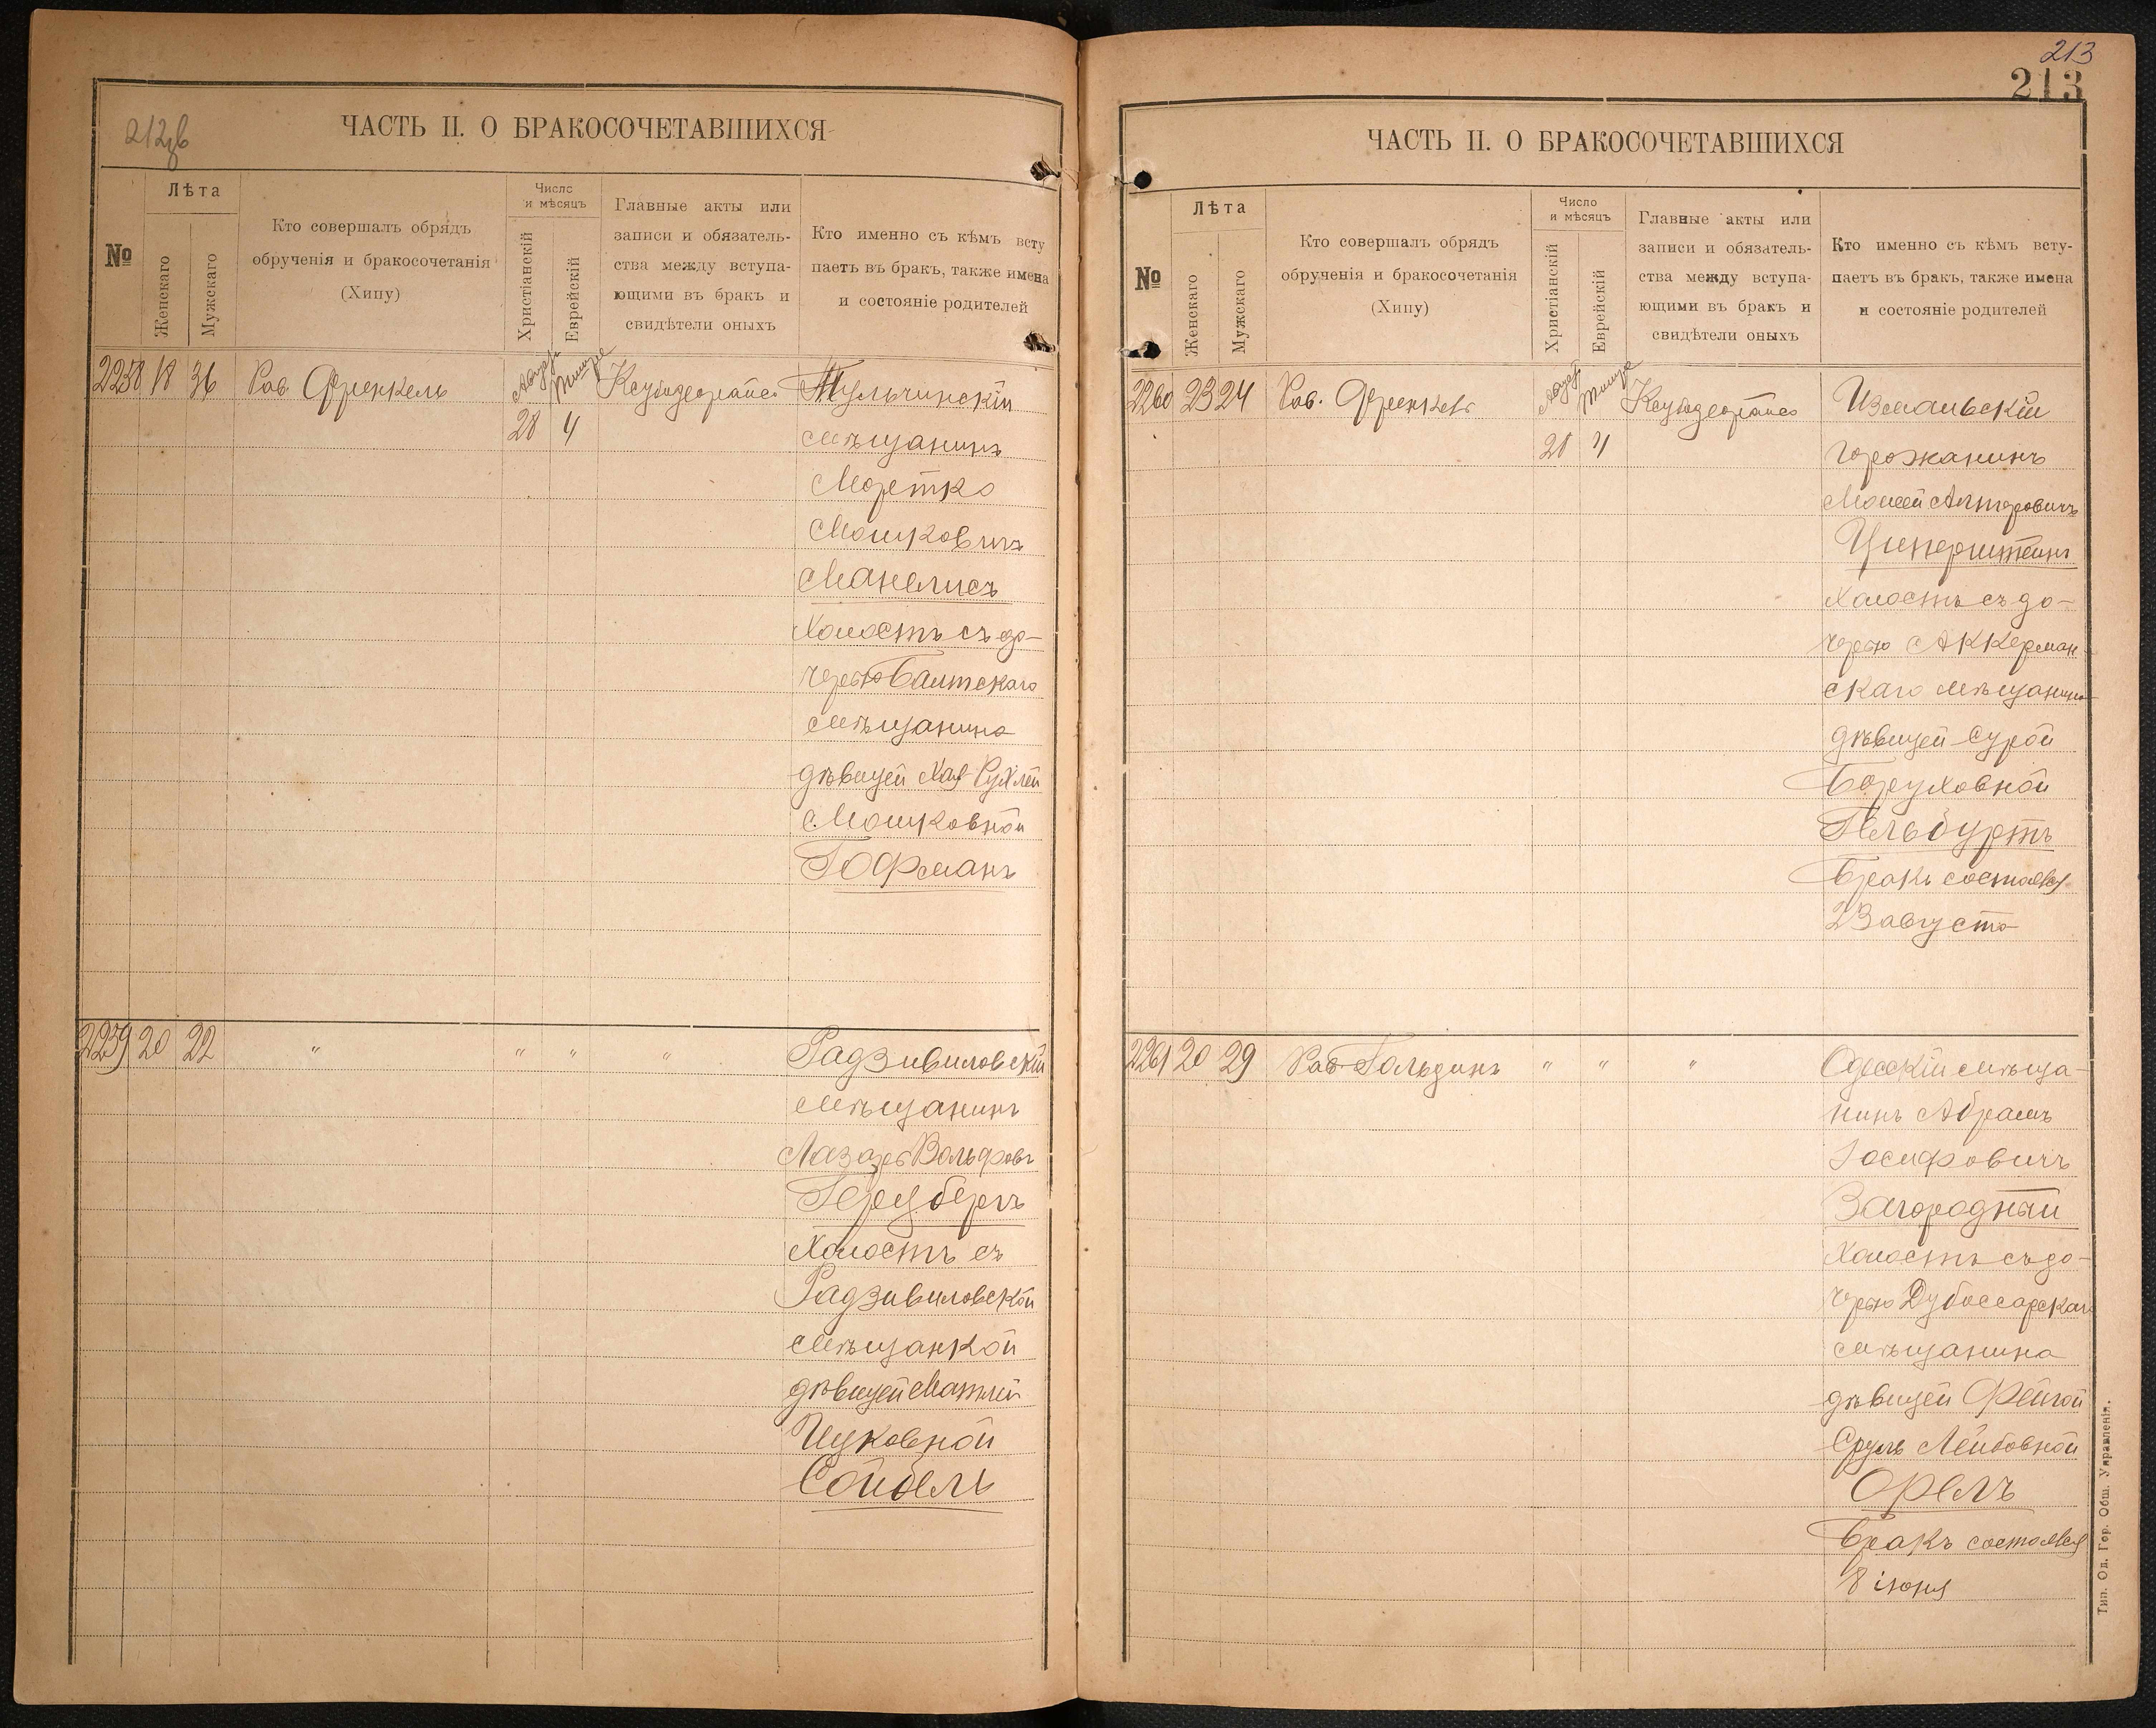 212об
ЧАСТЬ II. О БРАКОСОЧЕТАВШИХСЯ
№
Лѣта
Женскаго
Мужскаго
Кто совершалъ обрядъ
обрученія и бракосочетанія
(Хипу)
Число
и мѣсяцъ
Христіанскій
Еврейскій
Главные акты или
записи и обязатель-
ства между вступа-
ющими въ бракъ и
свидѣтели оныхъ
Кто именно съ кѣмъ всту
паетъ въ бракъ, также имена
и состояніе родителей
2258 18 36 Рав. Френкель Тишре Тульчинскій
28 4 мѣщанинъ
Мортко
Мошковичъ
Манелисъ
холостъ съ до-
черью Балтскаго
мѣщанина
дѣвицей Хая-Рухлей
Мошковной
Гофманъ
2259 20 22 " " " " Радзивиловскій
мѣщанинъ
Лазарь Вольфовъ
Герцбергъ
холостъ съ
Радзивиловской
мѣщанкой
дѣвицей Матлей
Ицковной
Сойбель
213
213
ЧАСТЬ II. О БРАКОСОЧЕТАВШИХСЯ
№
Лѣта
Женскаго
Мужскаго
Кто совершалъ обрядъ
обрученія и бракосочетанія
(Хипу)
Число
и мѣсяцъ
Христіанскій
Еврейскій
Главные акты или
записи и обязатель-
ства между вступа-
ющими въ бракъ и
свидѣтели оныхъ
Кто именно съ кѣмъ всту-
паетъ въ бракъ, также имена
и состояніе родителей
2260 23 24 Рав. Френкель Тишре Измаильскій
28 4 горожанинъ
Моисей Алтеровичъ
Циперштейнъ
холостъ съ до-
черью Аккерман
скаго мѣщанина
дѣвицей Сурой
Боруховной
Гельбуртъ
Бракъ состоялся
23 августа
2261 20 29 Рав Гольдинъ " " " Одесскій мѣща-
нинъ Абрамъ
Іосифовичъ
Загородный
холостъ съ до-
черью Дубоссарскаго
мѣщанина
дѣвицей Фейгой
Сруль Лейбовной
Орелъ
Бракъ состоялся
8 іюня
Тип. Од. Гор. Общ. Управленія.